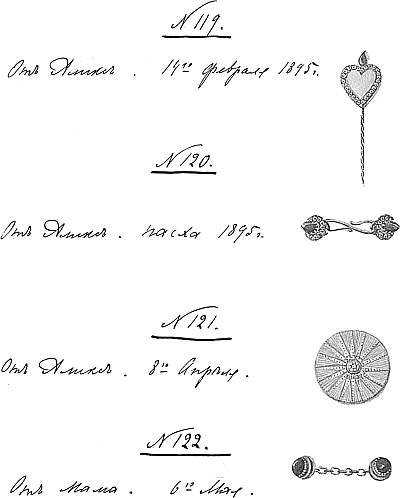 N 119.
Отъ Аликс. 14го февраля 1895г.
N 120.
Отъ Аликс. пасха 1895г.
N 121.
Отъ Аликс. 8го Апрѣля.
N 122.
Отъ Мама. 6го Мая.